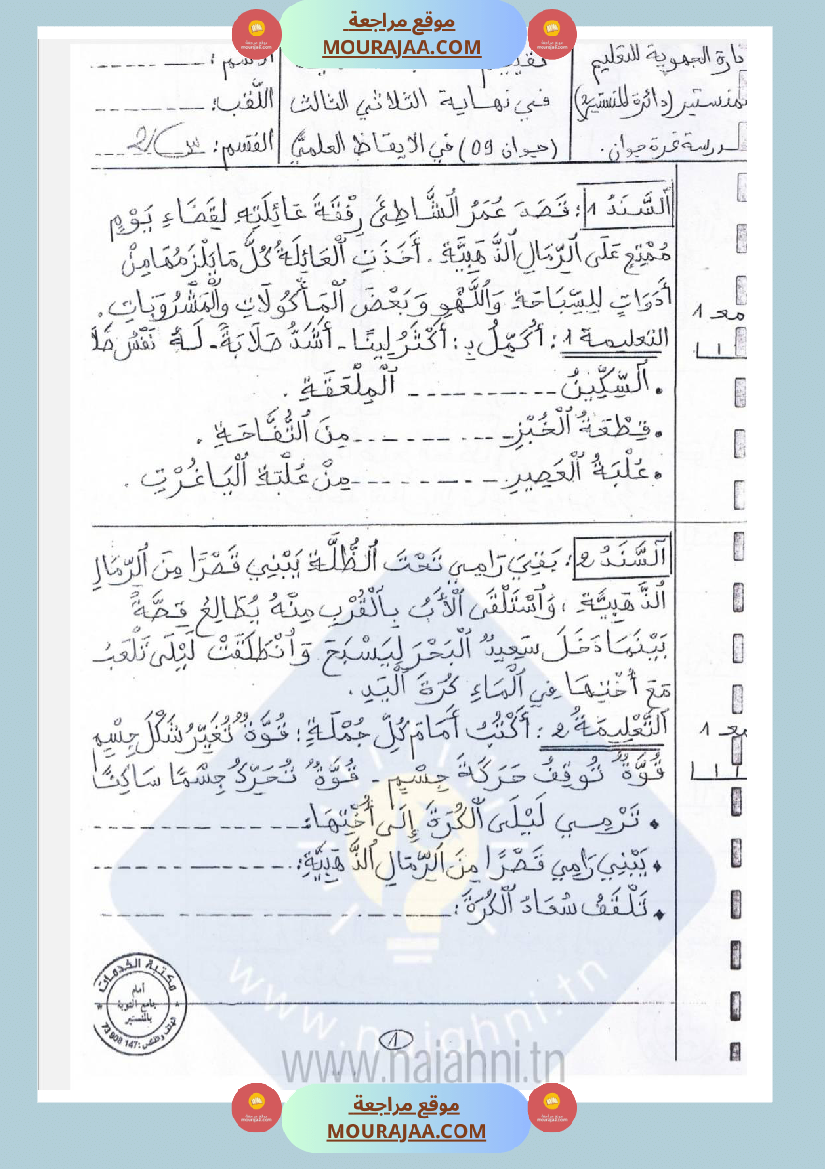 موقع مراجعة
MOURAJAA.COM
دارة الجهوية للتعليم
تقييم
الاسم :
(دائرة المنستير 2)
في نهاية الثلاثي الثالث
اللّقب:
(جوان 09) في الايقاظ العلميّ
القسم: س/2
اَلسَّنَدُ 1 : قَصَدَ عُمَرُ اُلشَّاطِئَ رِفْقَةَ عَائِلَتِهِ لِقَضَاءِ يَوْمٍ
مُمْتِعٍ عَلَى اُلرِّمَالِ اُلذَّهَبِيَّةِ . أَخَذَتِ اُلْعَائِلَةُ كُلَّ مَا يَلْزَمُهَا مِنْ
أَدَوَاتٍ لِلسِّبَاحَةِ وَاُللَّهْوِ وَ بَعْضَ اُلْمَأْكُولَاتِ وَاُلْمَشْرُوبَاتِ .
مع 1
التعليمة 1 : أُكَمِّلُ بِـ : أَكْثَرُ لِينًا - أَشَدُّ صَلَابَةً - لَهُ نَفْسُ
• اَلسِّكِّينُ ---------- اُلْمِلْعَقَةِ .
• قِطْعَةُ اُلْخُبْزِ ---------- مِنَ اُلتُّفَّاحَةِ .
• عُلْبَةُ اُلْعَصِيرِ ---------- مِنْ عُلْبَةِ اُلْيَاغُرْتِ .
اَلسَّنَدُ 2 : بَقِيَ رَامِي تَحْتَ اُلظُّلَّةِ يَبْنِي قَصْرًا مِنَ اُلرِّمَالِ
اُلذَّهَبِيَّةِ ، وَاُسْتَلْقَى اُلْأَبُ بِاُلْقُرْبِ مِنْهُ يُطَالِعُ قِصَّةً
بَيْنَمَا دَخَلَ سَعِيدٌ اُلْبَحْرَ لِيَسْبَحَ وَاُنْطَلَقَتْ لَيْلَى تَلْعَبُ
مَعَ أُخْتِهَا فِي اُلْمَاءِ كُرَةَ اُلْيَدِ .
مع 1
اَلتَّعْلِيمَةُ 2 : أَكْتُبُ أَمَامَ كُلِّ جُمْلَةٍ : قُوَّةٌ تُغَيِّرُ شَكْلَ جِسْمٍ
قُوَّةٌ تُوقِفُ حَرَكَةَ جِسْمٍ - قُوَّةٌ تُحَرِّكُ جِسْمًا سَاكِنًا
• تَرْمِي لَيْلَى اُلْكُرَةَ إِلَى أُخْتِهَا: ----------
• يَبْنِي رَامِي قَصْرًا مِنَ اُلرِّمَالِ اُلذَّهَبِيَّةِ: ----------
• تَلْقَفُ سُعَادُ اُلْكُرَةَ: ----------
مكتبة الخدمات
أمام
جامع التوبة
بالمنستير
73 908 147
1
www.najahni.tn
www.najahni.tn
موقع مراجعة
MOURAJAA.COM